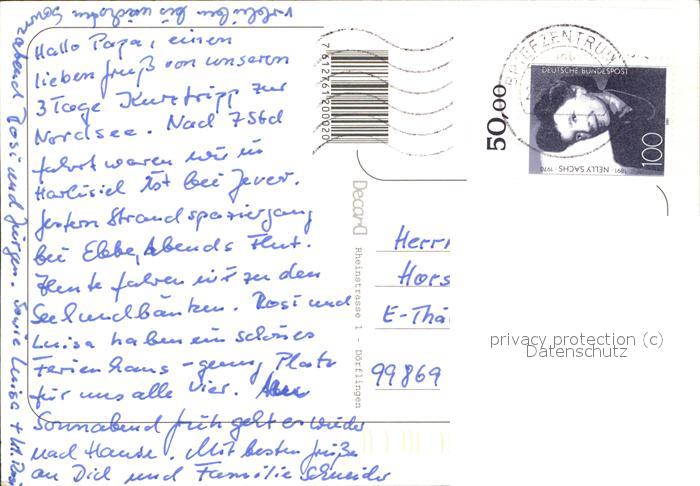 Hallo Papa, einen
lieben Gruß von unseren
3 Tage Kurztripp zur
Nordsee. Nach 7 Std
fahrt waren wir in
Harlesiel Ist bei Jever.
Gestern Strandspaziergang
bei Ebbe, Abends Flut.
Heute fahren wir zu den
Seehundbänken. Rosi und
Luisa haben ein schönes
Ferienhaus - genug Platz
für uns alle Vier.
Sonnabend früh geht es wieder
nach Hause. Mit besten Grüßen
an Dich und Familie Schneider
verbleiben bis nächsten Sonn
abend Rosi und Jürgen. Sowie Luisa +
7612761200020
Decard
Rheinstrasse 1 - Dörflingen
50,00
BRIEFZENTRUM
DEUTSCHE BUNDESPOST
100
1891 · NELLY SACHS · 1970
Herrn
Hors
E-Thä
99869
privacy protection (c)
Datenschutz